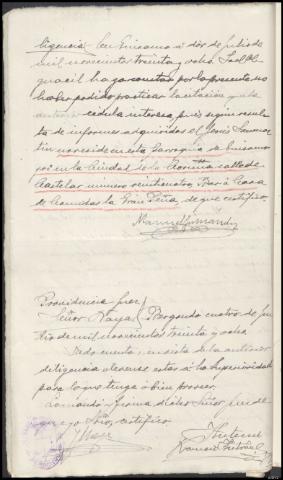 ligencia - En Guisamo a dos de Julio de
mil novecientos treinta y ocho. Yo el Al-
guacil hago constar por la presente no
haber podido practicar la citación que la
anterior cédula interesa, pues según resul-
ta de informes adquiridos el Jesús
no reside en esta Parroquia de Guisamo
y si en la Ciudad de la Coruña calle de
Castelar numero veinticuatro, Bar o Casa
de Comidas la Gran Peña, de que certifico.
Manuel
Providencia Juez
Señor Naya Bergondo cuatro de Ju-
lio de mil novecientos treinta y ocho
Dado cuenta; en vista de la anterior
diligencia elevense estas a la Superioridad
para lo que tenga a bien proveer.
Lo mandó y firma dicho Señor Juez de
que yo Srio. certifico.
J Naya
Ante mi
Ramón